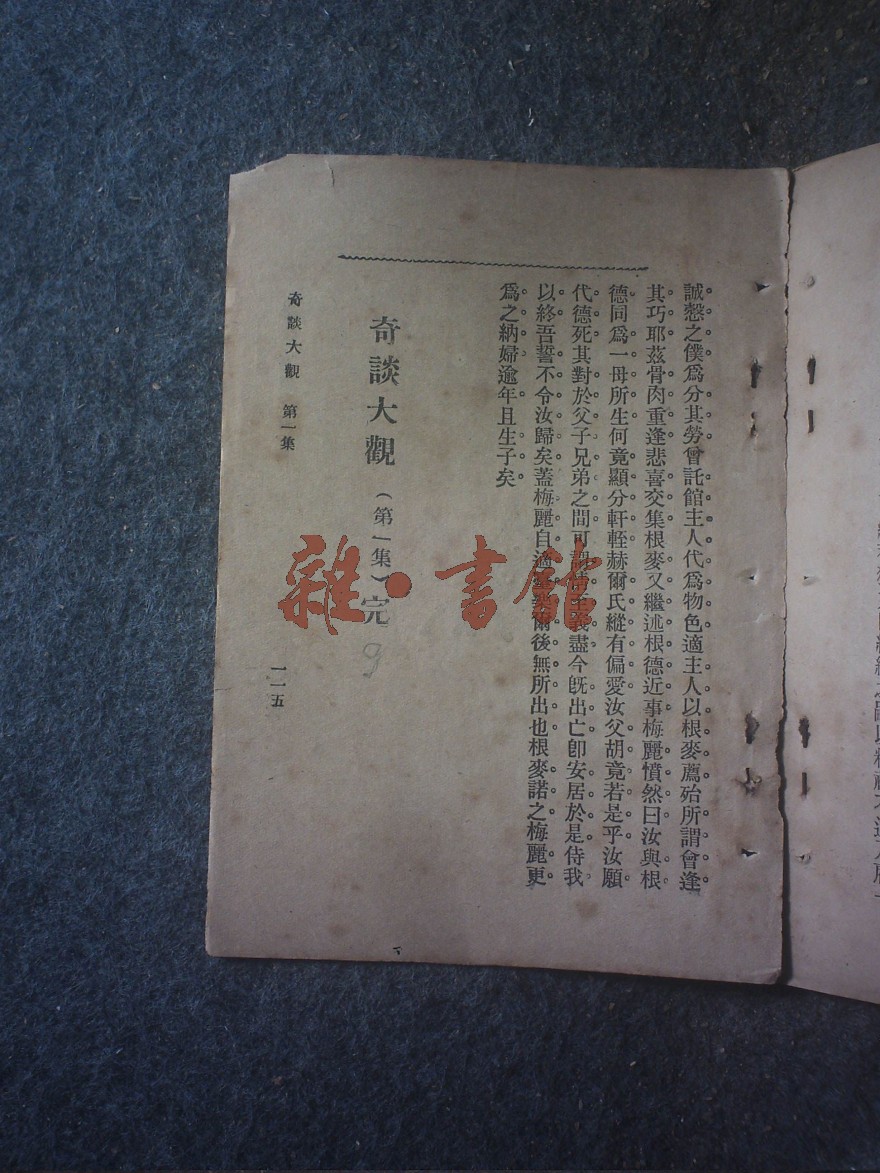 誠慤之僕爲分其勞曾託館主人代爲物色適主人以根麥薦殆所謂會逢
其巧耶茲骨肉重逢悲喜交集根麥又繼述根德近事梅麗憤然曰汝與根
德同爲一母所生何竟顯分軒輊赫爾氏縱有偏愛汝父胡竟若是乎汝願
代德死其對於父子兄弟之間可謂情至義盡今旣出亡卽安居於是侍我
以終吾誓不令汝歸矣蓋梅麗自適爾後無所出也根麥諾之梅麗更
爲之納婦逾年且生子矣
奇談大觀(第一集)完
9
奇談大觀 第一集
一一五
雜·書館